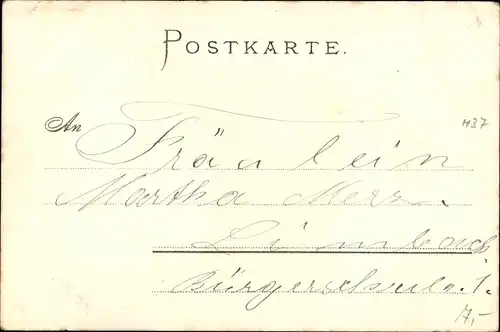 POSTKARTE.
An Fräulein
Martha Merz.
Limbach
Bürgerschule. 1.
H37
17,-